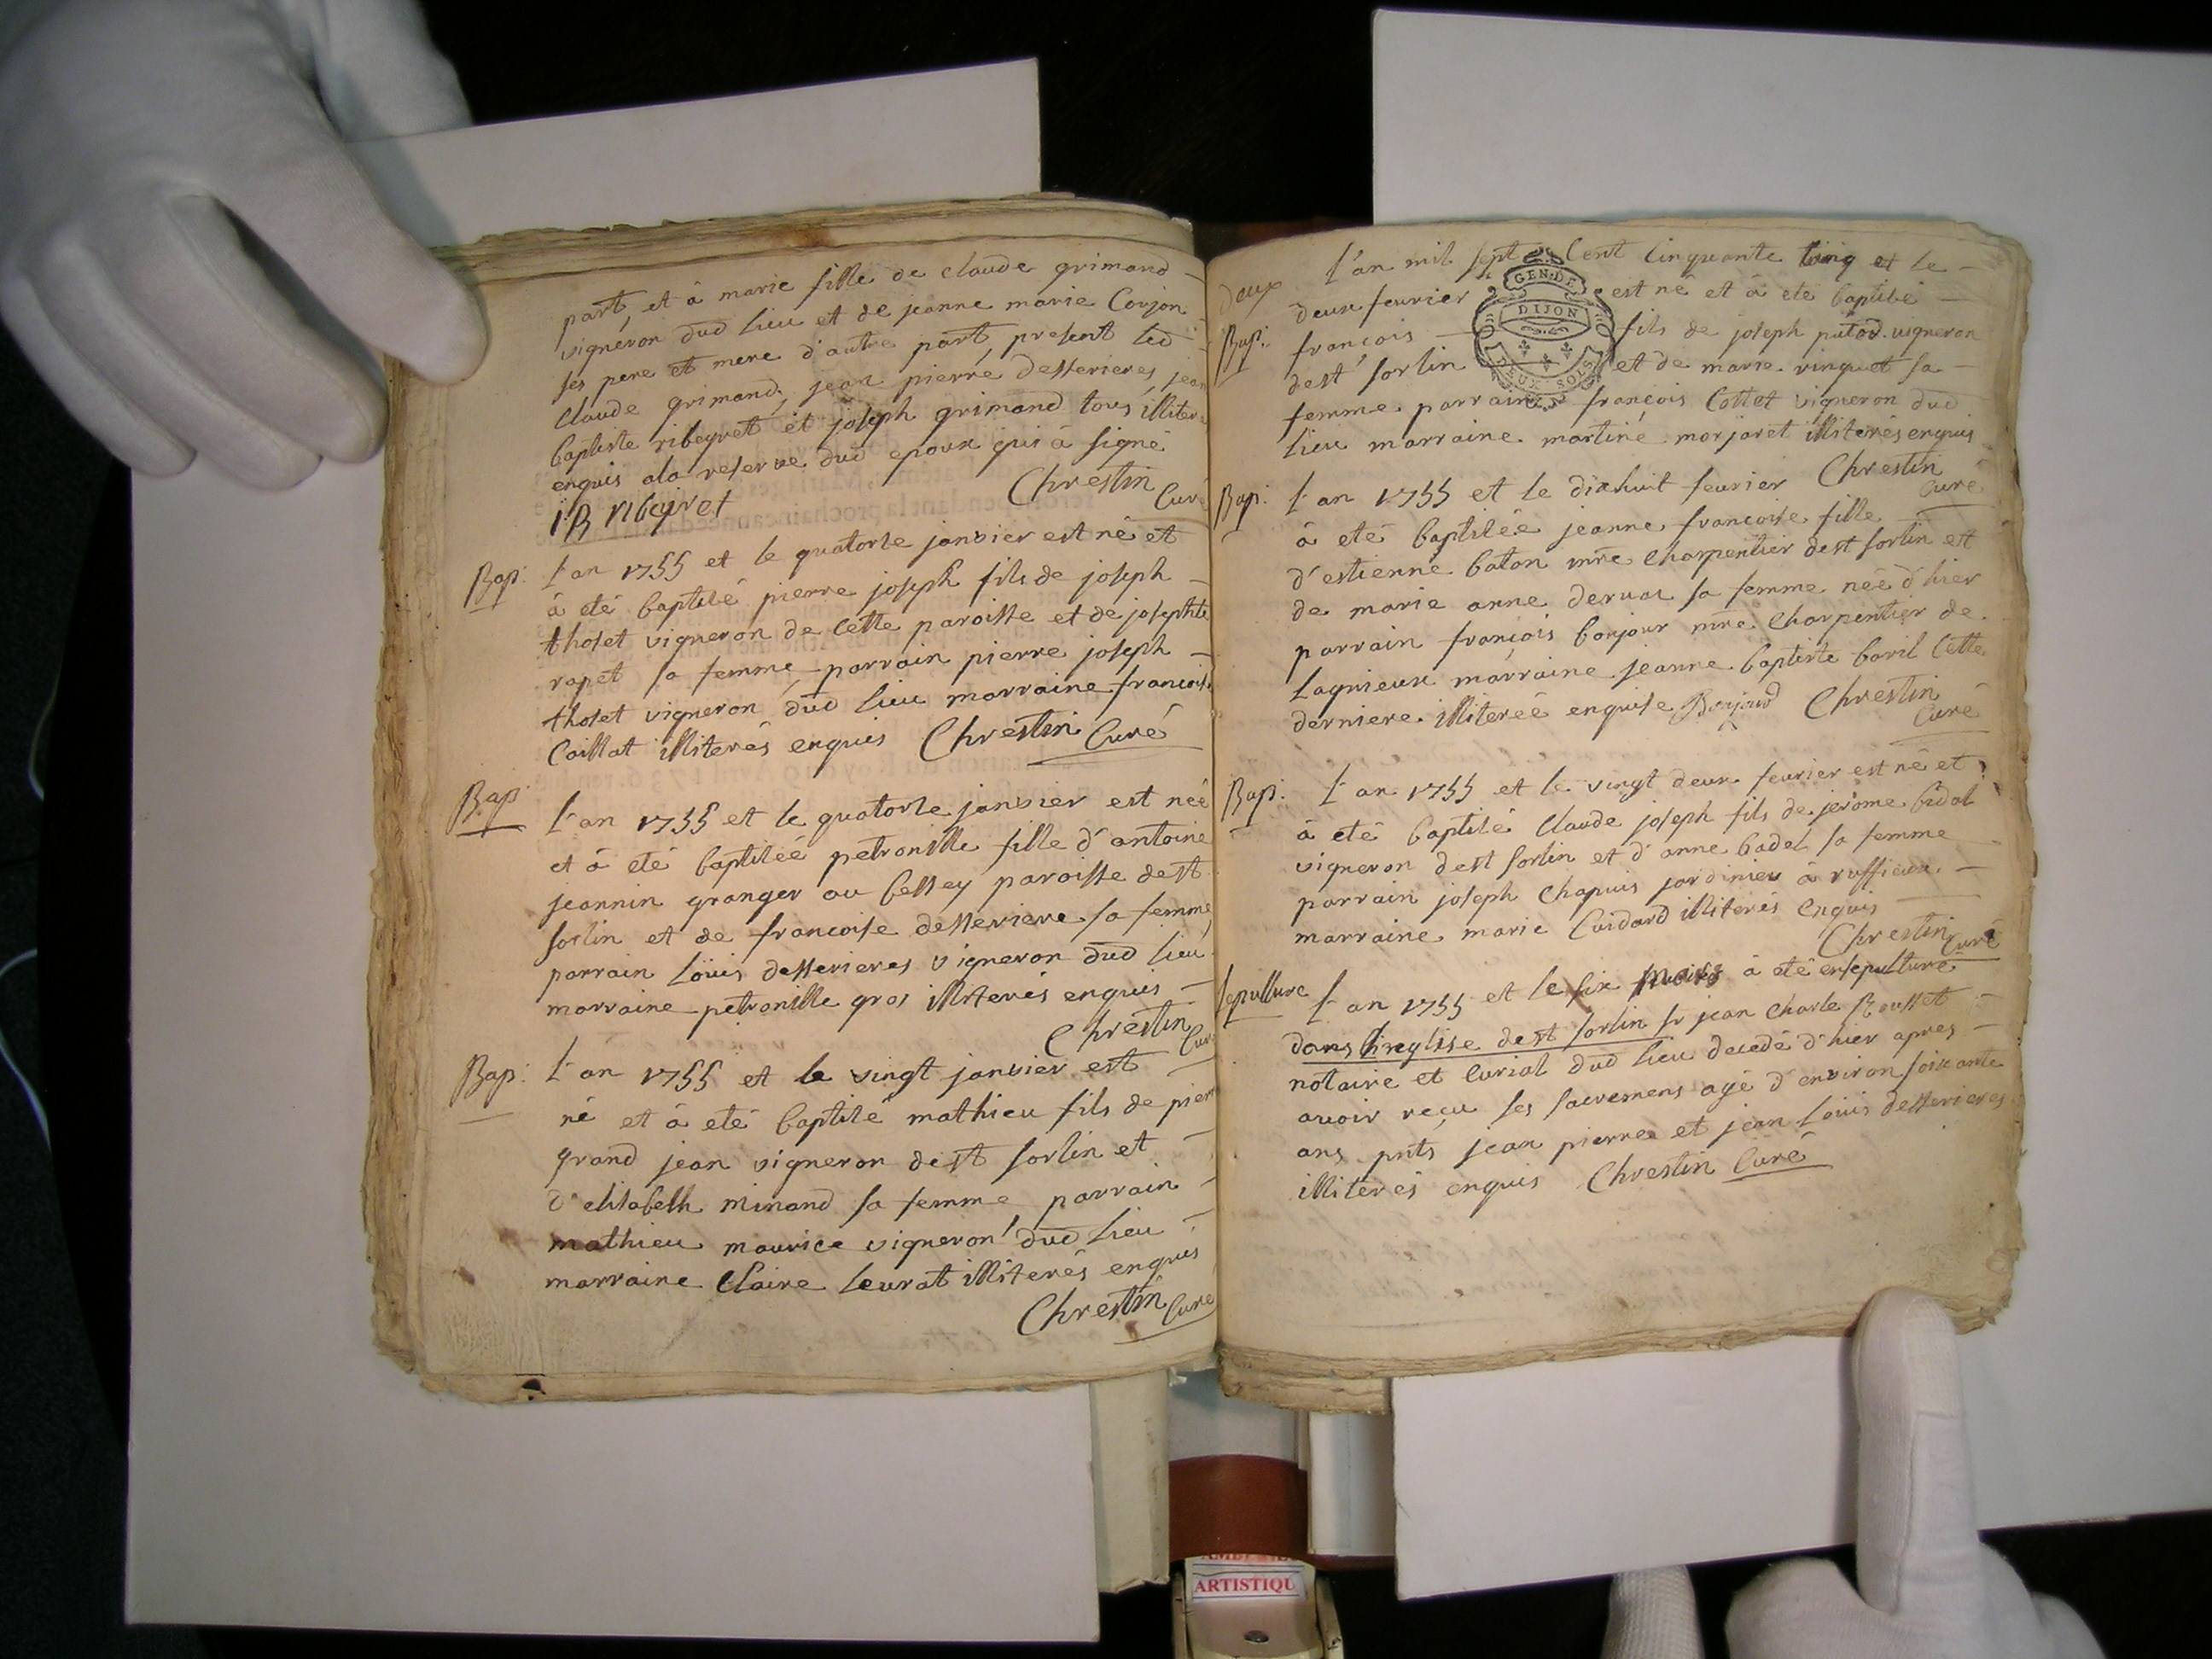 part, et à marie fille de claude grimand
vigneron dud lieu et de jeanne marie Conjon
ses pere et mere d'autre part, present led
Claude grimand, jean pierre desserieres, jean
baptiste ribeyret et joseph grimand tous illiter
enquis ala reserve dud epoux qui à signé
Chrestin Curé
IB ribeyret
Bap: L'an 1755 et le quatorse janvier est né et
à eté baptisé pierre joseph fils de joseph
thoset vigneron de cette paroisse et de josephte
rapet sa femme, parrain pierre joseph
thoset vigneron dud lieu marraine francoise
Caillat illiterés enquis Chrestin Curé
Bap: L'an 1755 et le quatorse janvier est née
et à eté baptisée petronille fille d'antoine
jeannin granger au bessey paroisse de st
sorlin et de francoise desseriere sa femme,
parrain Loüis desserieres vigneron dud lieu
marraine petronille gros illiterés enquis
Chrestin Curé
Bap: L'an 1755 et le vingt janvier est
né et à eté baptisé mathieu fils de pier
grand jean vigneron de st sorlin et
d'elisabeth minand sa femme, parrain
mathieu maurice vigneron dud lieu
marraine Claire leurat illiterés enquis
Chrestin Curé
deux
L'an mil sept Cent Cinquante Cinq et le
deux fevrier est né et à eté baptisé
Bap: francois fils de joseph putod vigneron
de st sorlin et de marie vinquet sa
femme parrain francois Cottet vigneron dud
lieu marraine martine morjaret illiterés enquis
GEN. DE
DIJON
DEUX SOLS
Chrestin Curé
Bap: L'an 1755 et le dixhuit fevrier
à eté baptisée jeanne francoise fille
d'estienne baton mre Charpentier de st sorlin et
de marie anne dervas sa femme née d'hier
parrain francois bonjour mre Charpentier de
Lagnieux marraine jeanne baptiste baril Cette
derniere illiterée enquise Bonjour Chrestin
Curé
Bap: L'an 1755 et le vingt deux fevrier est né et
à eté baptisé Claude joseph fils de jerome bidal
vigneron de st sorlin et d'anne badel sa femme
parrain joseph Chapuis jardinier à ruffieux
marraine marie Cuidard illiterés enquis
Chrestin Curé
sepulture L'an 1755 et le six mars à eté ensepulturé
dans l'eglise de st sorlin sr jean Charle Rousset
notaire et Curial dud lieu decedé d'hier apres
avoir reçu ses sacremens agé d'environ soixante
ans pnts jean pierre et jean Loüis desserieres
illiterés enquis Chrestin Curé
ARTISTIQU